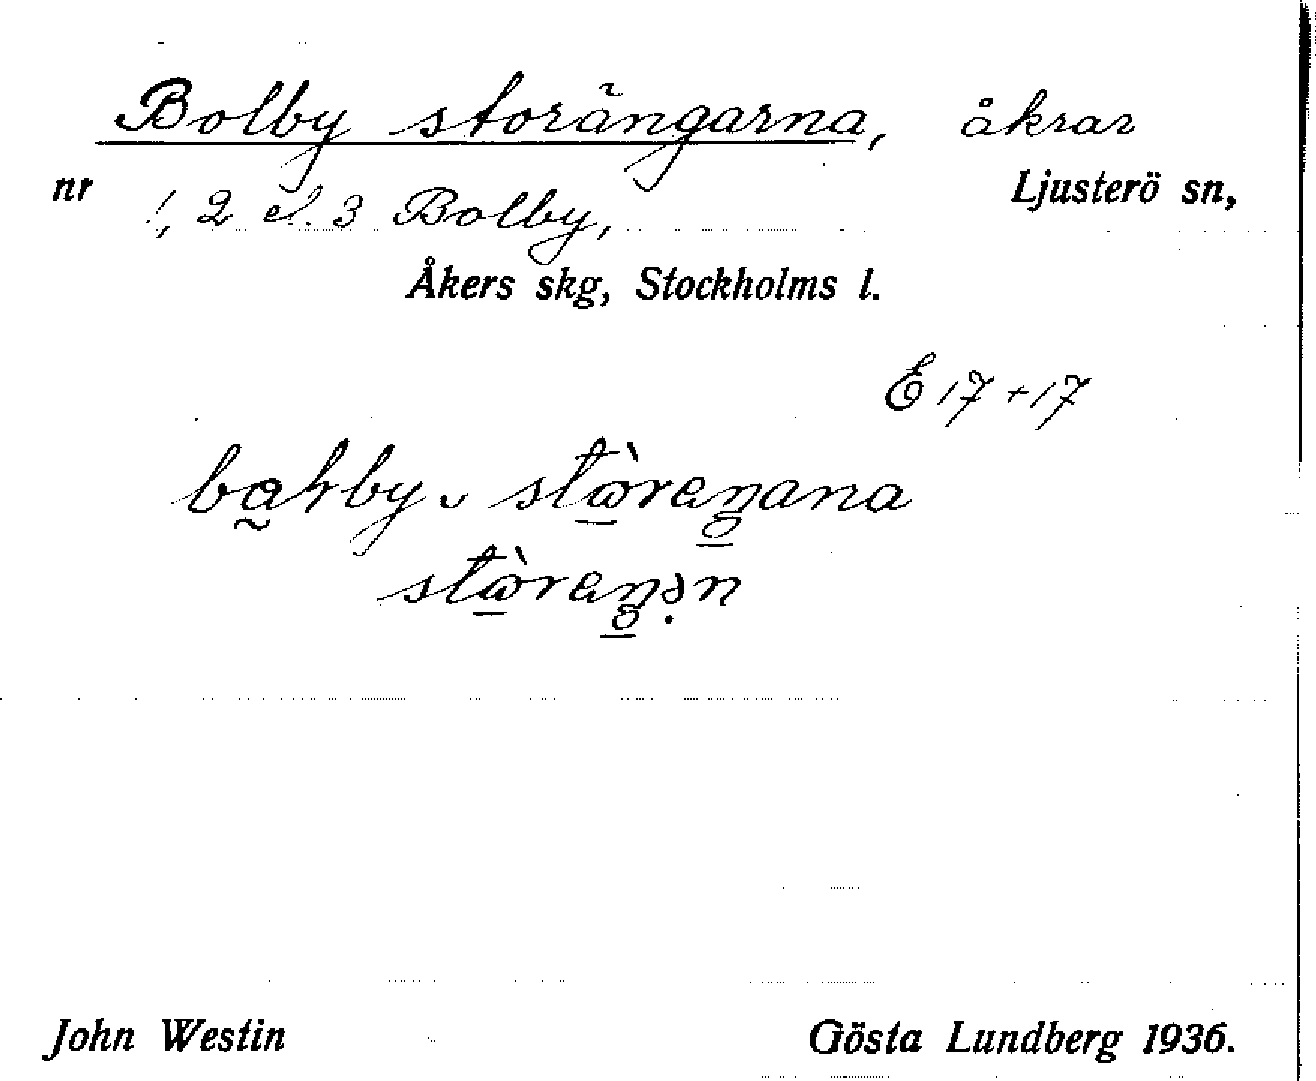 Bolby storängarna, åkrar
nr 1, 2 el. 3 Bolby, Ljusterö sn,
Åkers skg, Stockholms l.
E 17 + 17
John Westin Gösta Lundberg 1936.